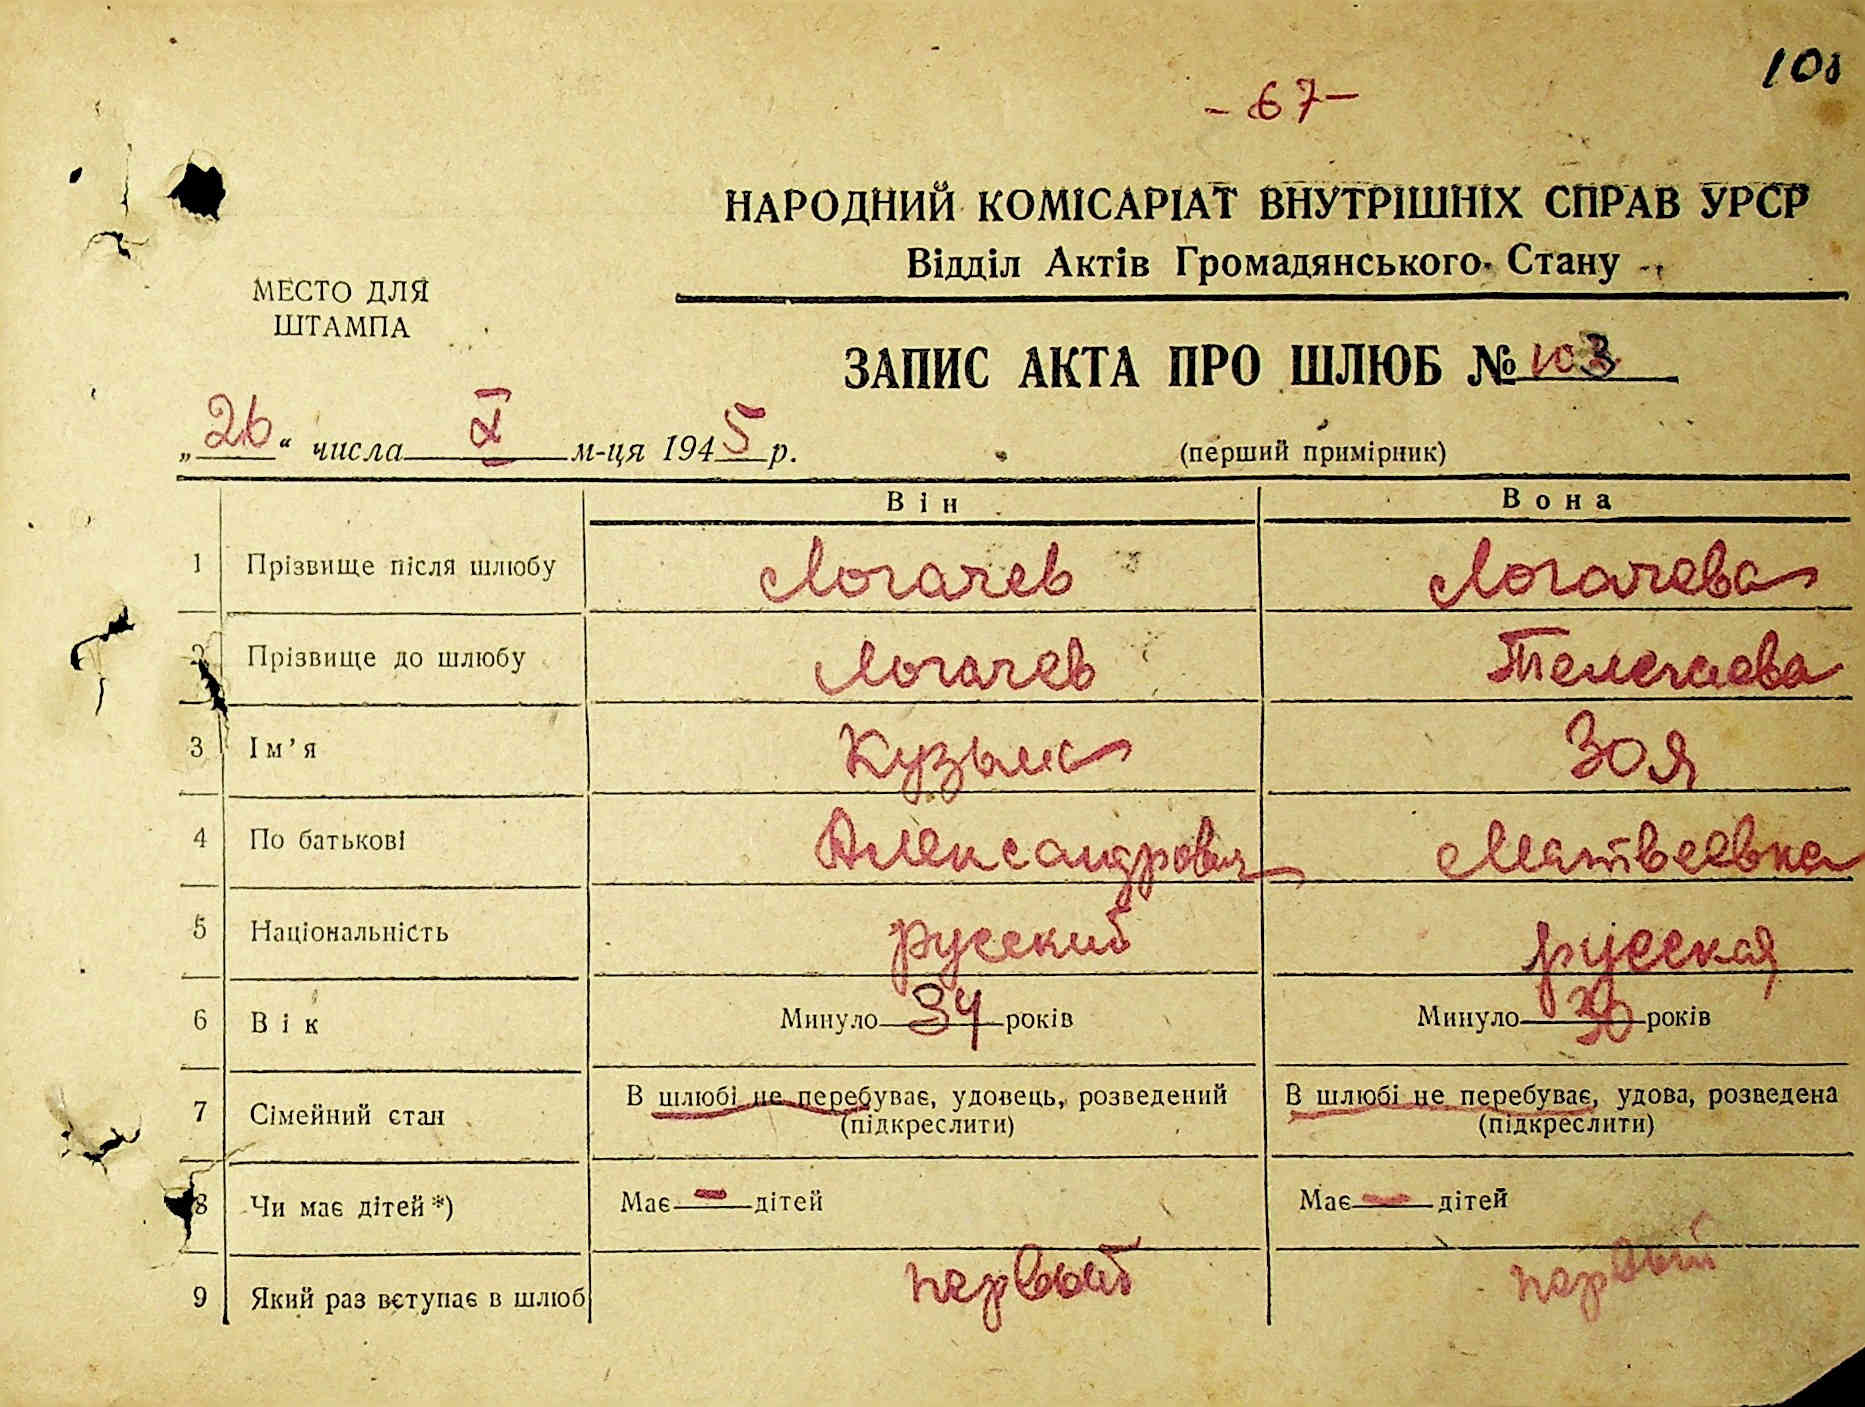 - 67 -
НАРОДНИЙ КОМІСАРІАТ ВНУТРІШНІХ СПРАВ УРСР
Відділ Актів Громадянського Стану
МЕСТО ДЛЯ
ШТАМПА
ЗАПИС АКТА ПРО ШЛЮБ № 103
„26“ числа X м-ця 1945 р.
(перший примірник)
Він Вона
1 Прізвище після шлюбу Логачев Логачева
2 Прізвище до шлюбу Логачев
3 Ім’я Кузьма Зоя
4 По батькові Александрович Матвеевна
5 Національність русский русская
6 Вік Минуло 34 років Минуло 30 років
7 Сімейний стан В шлюбі не перебуває, удовець, розведений В шлюбі не перебуває, удова, розведена
(підкреслити) (підкреслити)
8 Чи має дітей *) Має — дітей Має — дітей
9 Який раз вступає в шлюб первый первый